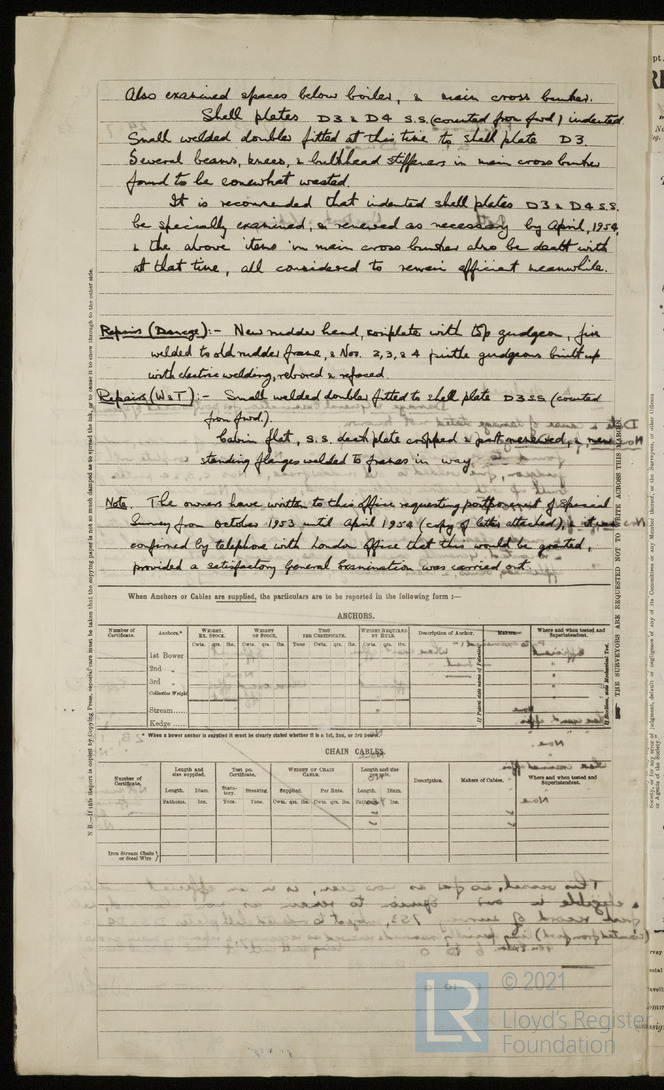 Also examined spaces below boiler, & main cross bunker.
Shell plates D3 & D4 S.S. (counted from fwd) indented
Small welded doubler fitted at this time to shell plate D3.
Several beams, knees, & bulkhead stiffeners in main cross bunker
found to be somewhat wasted.
It is recommended that indented shell plates D3 & D4 S.S.
be specially examined, & renewed as necessary by April, 1954,
& the above items in main cross bunker also be dealt with
at that time, all considered to remain efficient meanwhile.
Repairs (Damage):- New rudder head, complete with top gudgeon, fire
welded to old rudder frame, & Nos. 2, 3, & 4 pintle gudgeons built up
with electric welding, rebored & refaced.
Repairs (W&T):- Small welded doubler fitted to shell plate D3 SS (counted
from fwd.)
Cabin flat, S.S. deck plate cropped & part renewed, & new
standing flanges welded to frames in way.
Note. The owners have written to this office requesting postponement of Special
Survey from October 1953 until April 1954 (copy of letter attached), & it was
confirmed by telephone with London Office that this would be granted,
provided a satisfactory General Examination was carried out.
When Anchors or Cables are supplied, the particulars are to be reported in the following form :—
ANCHORS.
Number of Certificate. Anchors.* WEIGHT, EX. STOCK. WEIGHT OF STOCK. TEST PER CERTIFICATE. WEIGHT REQUIRED BY RULE. Description of Anchor. Makers. Where and when tested and Superintendent.
Cwts. qrs. lbs. Cwts. qrs. lbs. Tons Cwts. qrs. lbs. Cwts. qrs. lbs.
1st Bower
2nd „
3rd „
Collective Weight
Stream
Kedge
* When a bower anchor is supplied it must be clearly stated whether it is a 1st, 2nd, or 3rd bower.
CHAIN CABLES.
Number of Certificate. Length and size supplied. Test per Certificate. WEIGHT OF CHAIN CABLE. Length and size per rule. Description. Makers of Cables. Where and when tested and Superintendent.
Length. Diam. Statutory. Breaking. Supplied. Per Rule. Length. Diam.
Fathoms. Ins. Tons. Tons. Cwts. qrs. lbs. Cwts. qrs. lbs. Fathoms. Ins.
Iron Stream Chain or Steel Wire
THE SURVEYORS ARE REQUESTED NOT TO WRITE ACROSS THIS MARGIN.
LR
© 2021
Lloyd's Register
Foundation